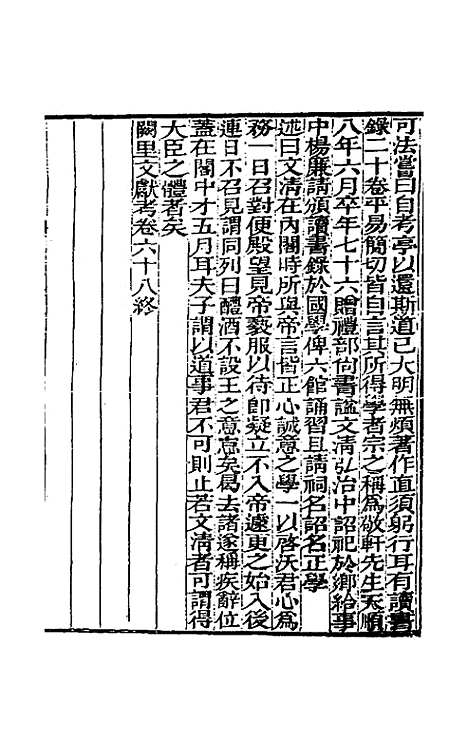 可法嘗曰自考亭以還斯道已大明無煩著作直須躬行耳有讀書
錄二十卷平易簡切皆自言其所得學者宗之稱為敬軒先生天順
八年六月卒年七十六贈禮部尙書謚文清弘治中詔祀於鄉給事
中楊廉請頒讀書錄於國學俾六館誦習且請祠名詔名正學
述曰文清在內閣時所與帝言皆正心誠意之學一以啓沃君心為
務一日召對便殿望見帝褻服以待即疑立不入帝遽更之始入後
連日不召見謂同列曰醴酒不設王之意怠矣曷去諸遂稱疾辭位
蓋在閣中才五月耳夫子謂以道事君不可則止若文清者可謂得
大臣之體者矣
闕里文獻考卷六十八終